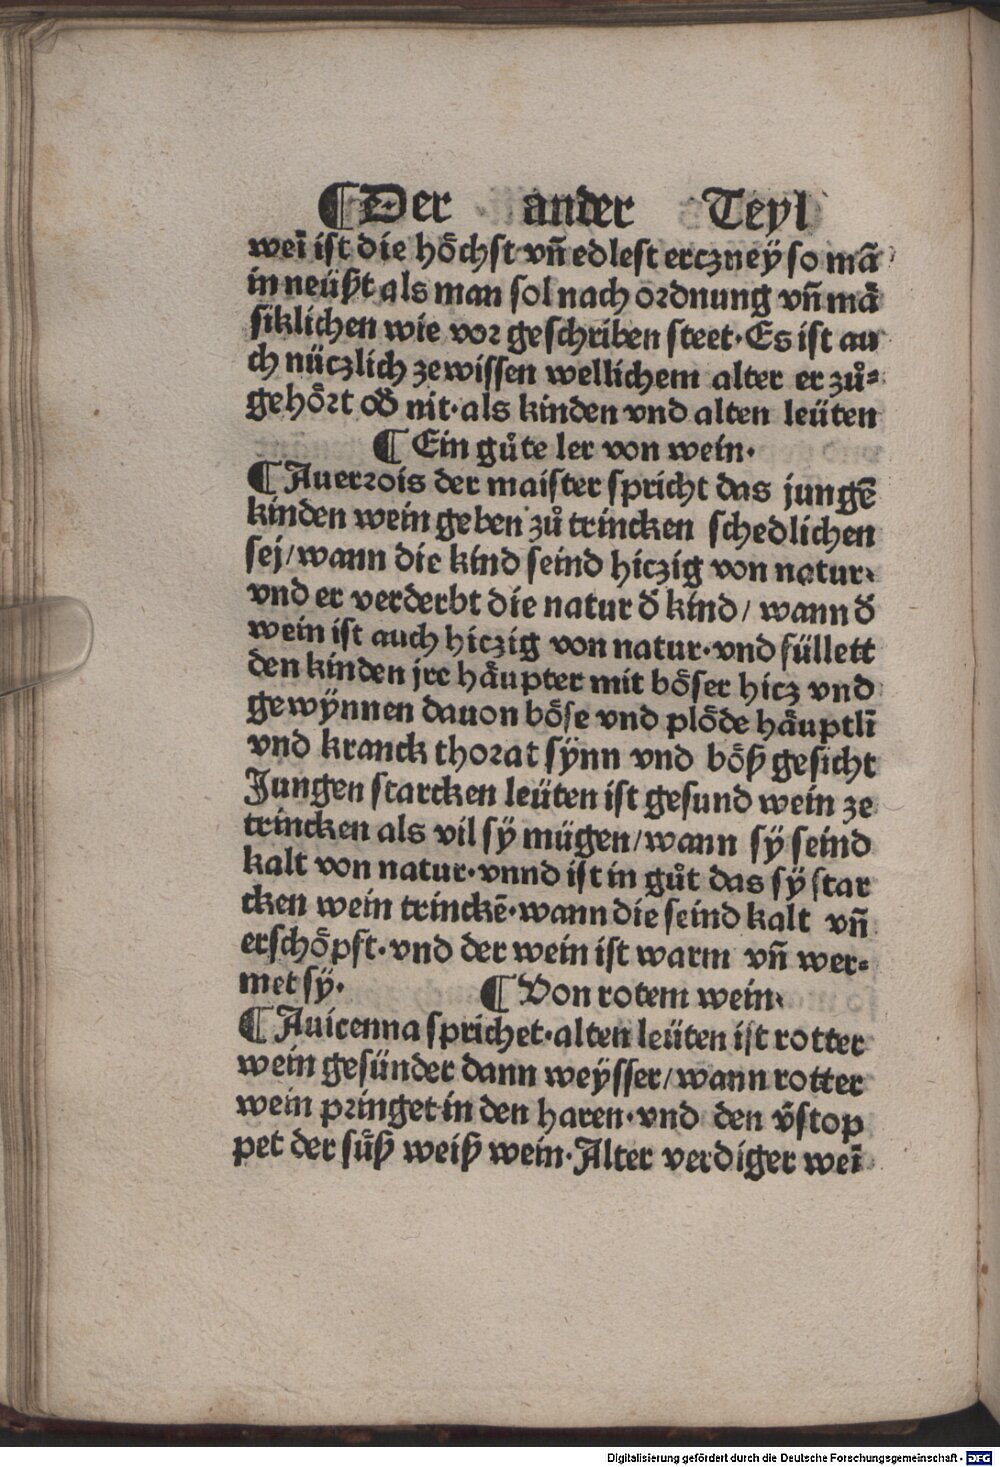 ¶Der ander Teyl
weī ist die hȍchst vñ edlest erczneÿ so mā
in neüßt als man sol nach ordnung vñ mä
siklichen wie vor geschriben steet·Es ist au
ch nüczlich ze wissen wellichem alter er zů⸗
gehört oď nit·als kinden vnd alten leüten
¶Ein gůte ler von wein·
¶Auerrois der maister spricht das jungē
kinden wein geben zů trincken schedlichen
sej/wann die kind seind hiczig von natur·
vnd er verderbt die natur ď kind/ wann ď
wein ist auch hiczig von natur·vnd füllett
den kinden jre häupter mit böser hicz vnd
gewÿnnen dauon böse vnd plöde häuptlī
vnd kranck thorat sÿnn vnd böß gesicht
Jungen starcken leüten ist gesund wein ze
trincken als vil sÿ mügen/wann sÿ seind
kalt von natur·vnnd ist in gůt das sÿ star
cken wein trinckē·wann die seind kalt vñ
erschöpft·vnd der wein ist warm vñ wer⸗
met sÿ· ¶Von rotem wein·
¶Auicenna sprichet·alten leüten ist rotter
wein gesünder dann weÿsser/wann rotter
wein pringet in den haren·vnd den v̄stop
pet der süß weiß wein·Alter verdiger weī
Digitalisierung gefördert durch die Deutsche Forschungsgemeinschaft - DFG